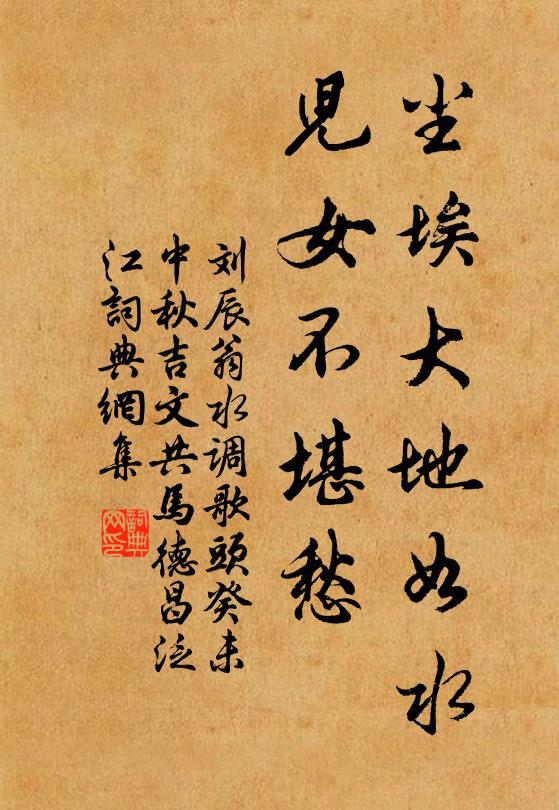 尘埃大地如水
児女不堪愁
刘辰翁水调歌頭癸未
中秋吉文共馬德昌泛
江詞典網集
詞典网印